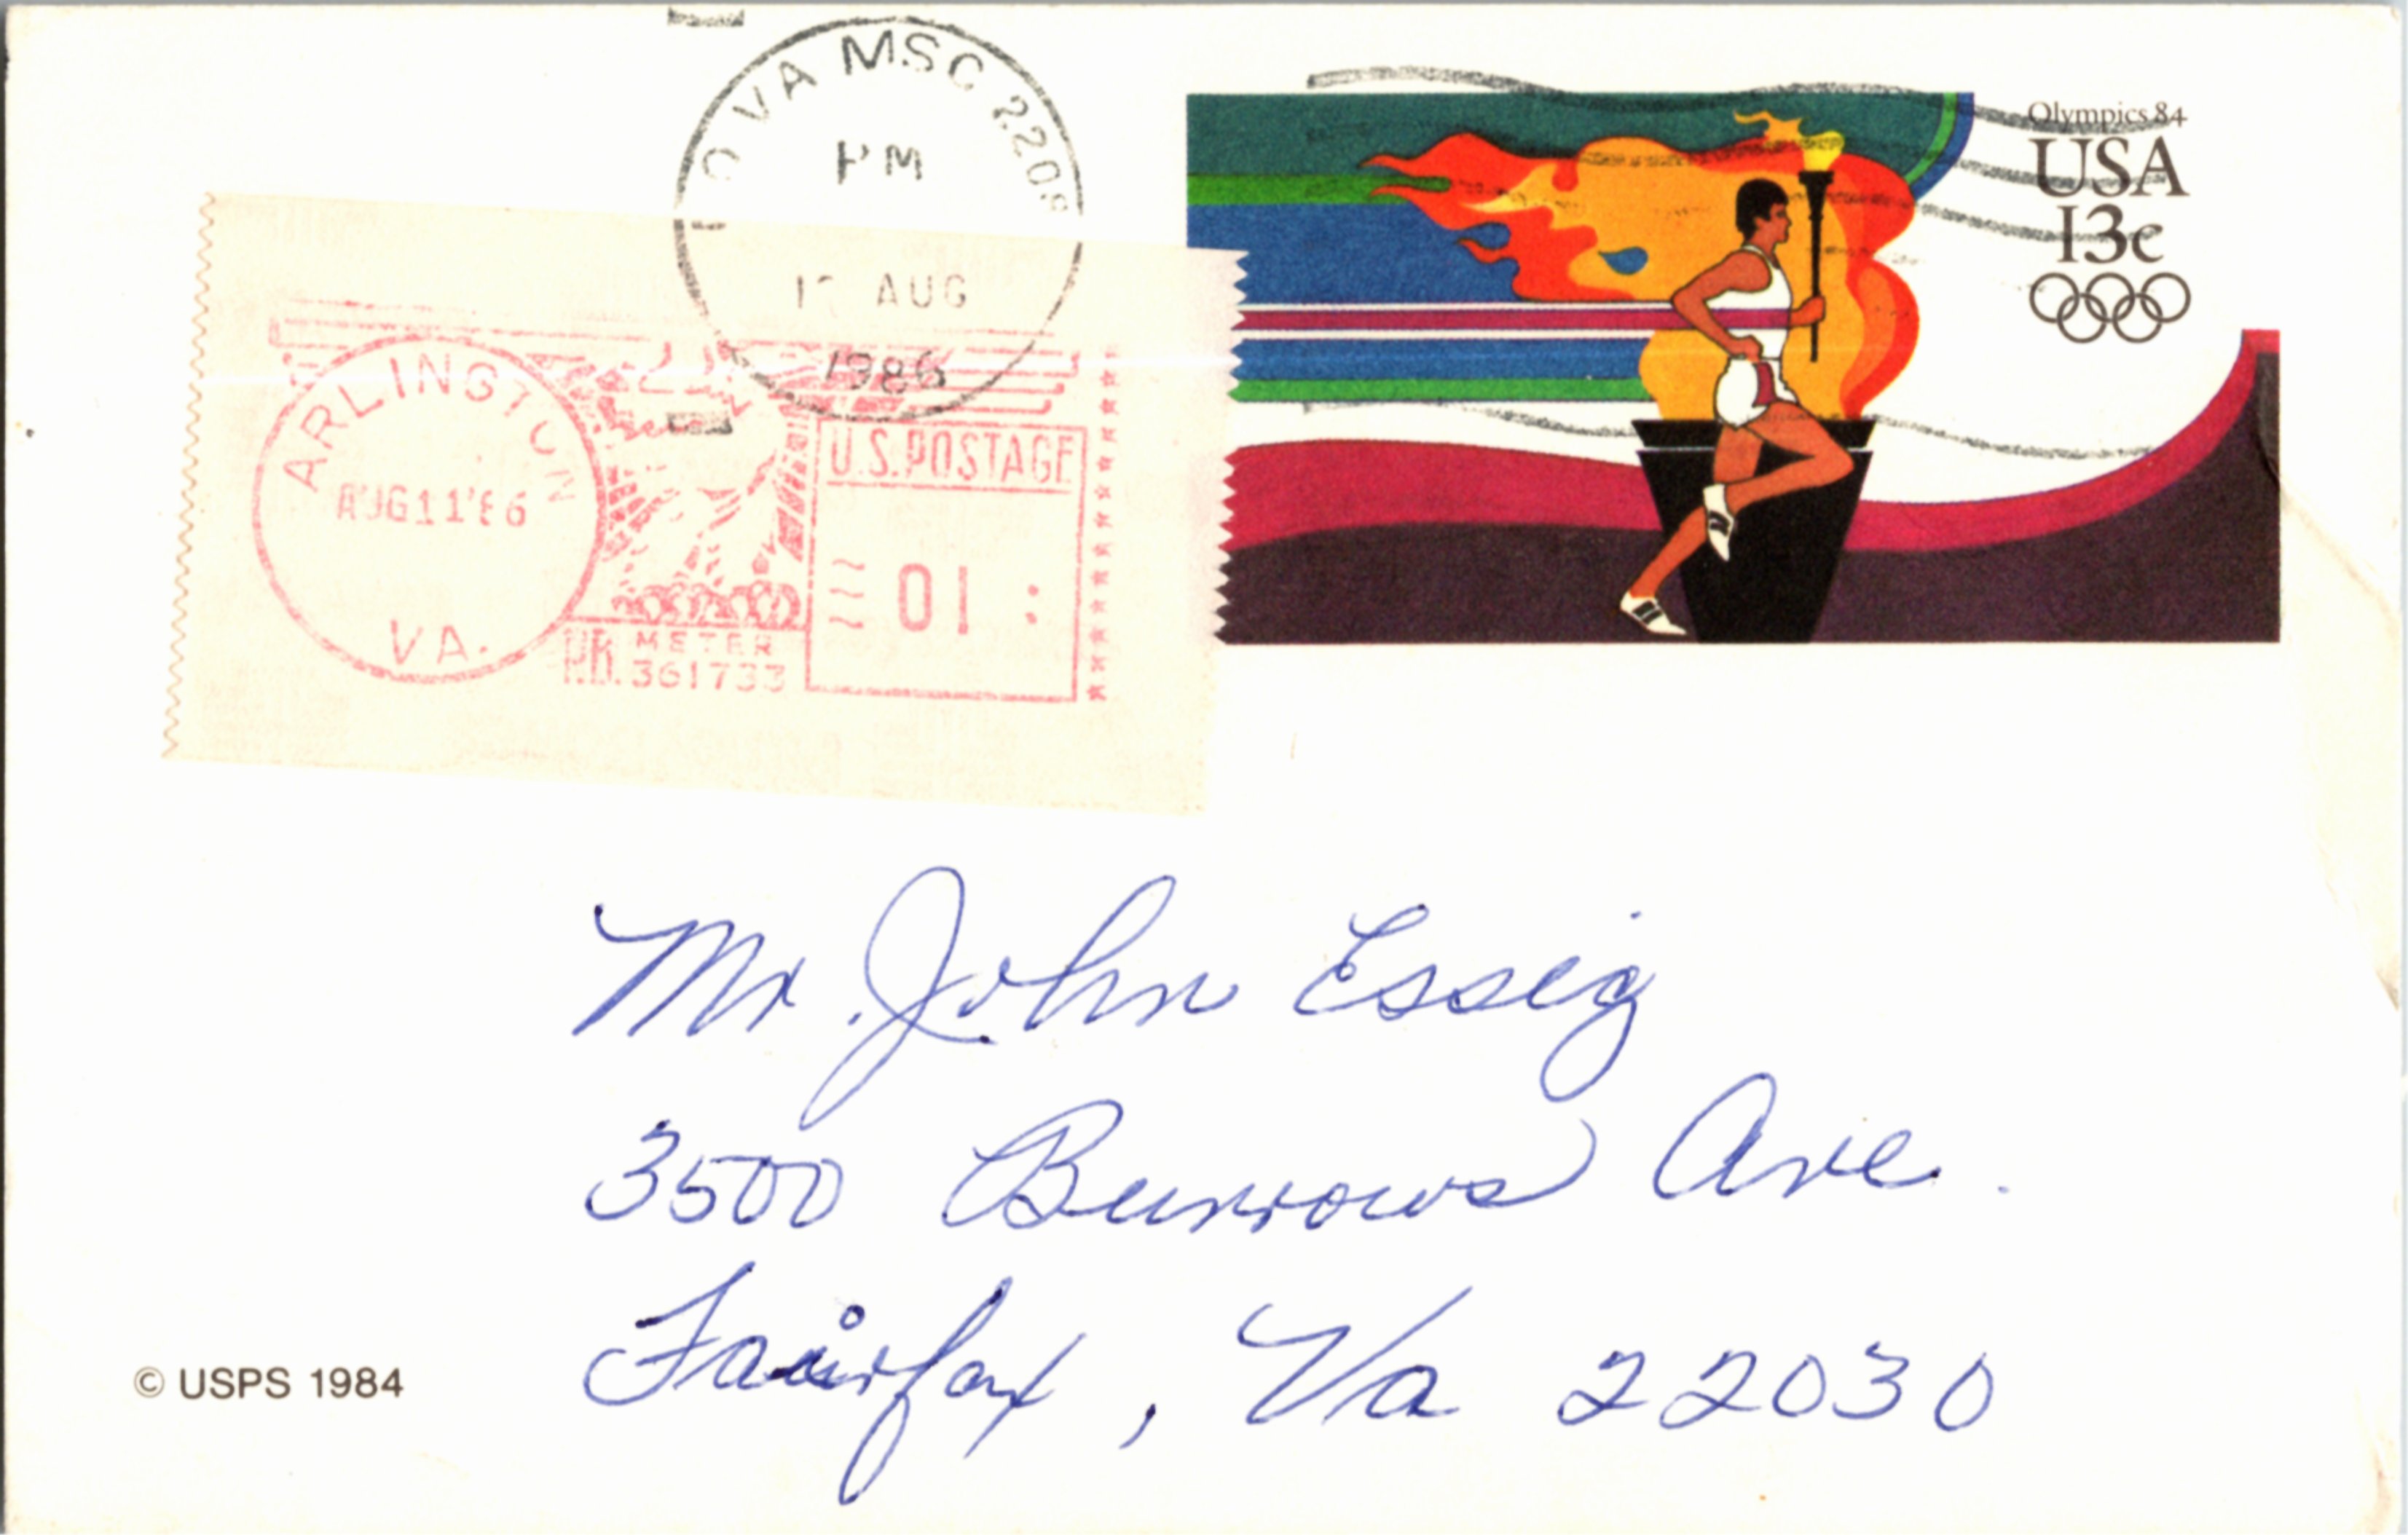 NOVA MSC 220
PM
AUG
1986
Olympics 84
USA
13c
ARLINGTON
AUG 11 '86
VA.
U.S. POSTAGE
01
P.B. METER
361733
Mr. John Essig
3500 Burrows Ave.
Fairfax, Va 22030
© USPS 1984